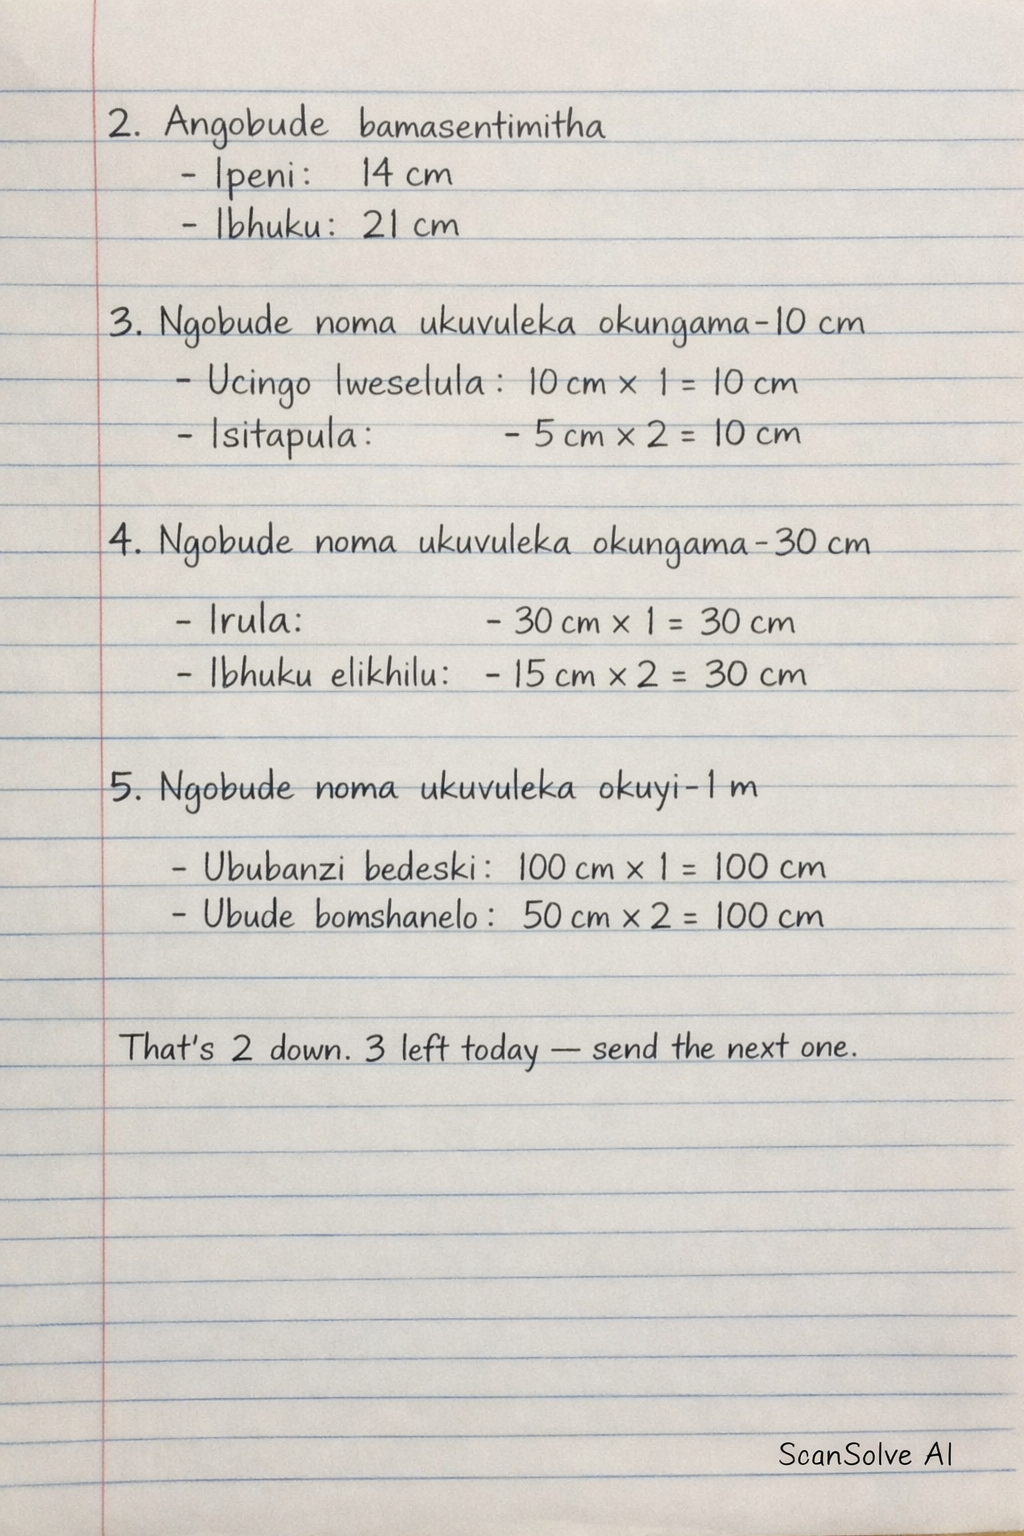 2. Angobude bamasentimitha
- Ipeni: 14 cm
- Ibhuku: 21 cm
3. Ngobude noma ukuvuleka okungama-10 cm
- Ucingo lweselula: 10 cm × 1 = 10 cm
- Isitapula: - 5 cm × 2 = 10 cm
4. Ngobude noma ukuvuleka okungama-30 cm
- Irula: - 30 cm × 1 = 30 cm
- Ibhuku elikhilu: - 15 cm × 2 = 30 cm
5. Ngobude noma ukuvuleka okuyi-1 m
- Ububanzi bedeski: 100 cm × 1 = 100 cm
- Ubude bomshanelo: 50 cm × 2 = 100 cm
That's 2 down. 3 left today — send the next one.
ScanSolve AI